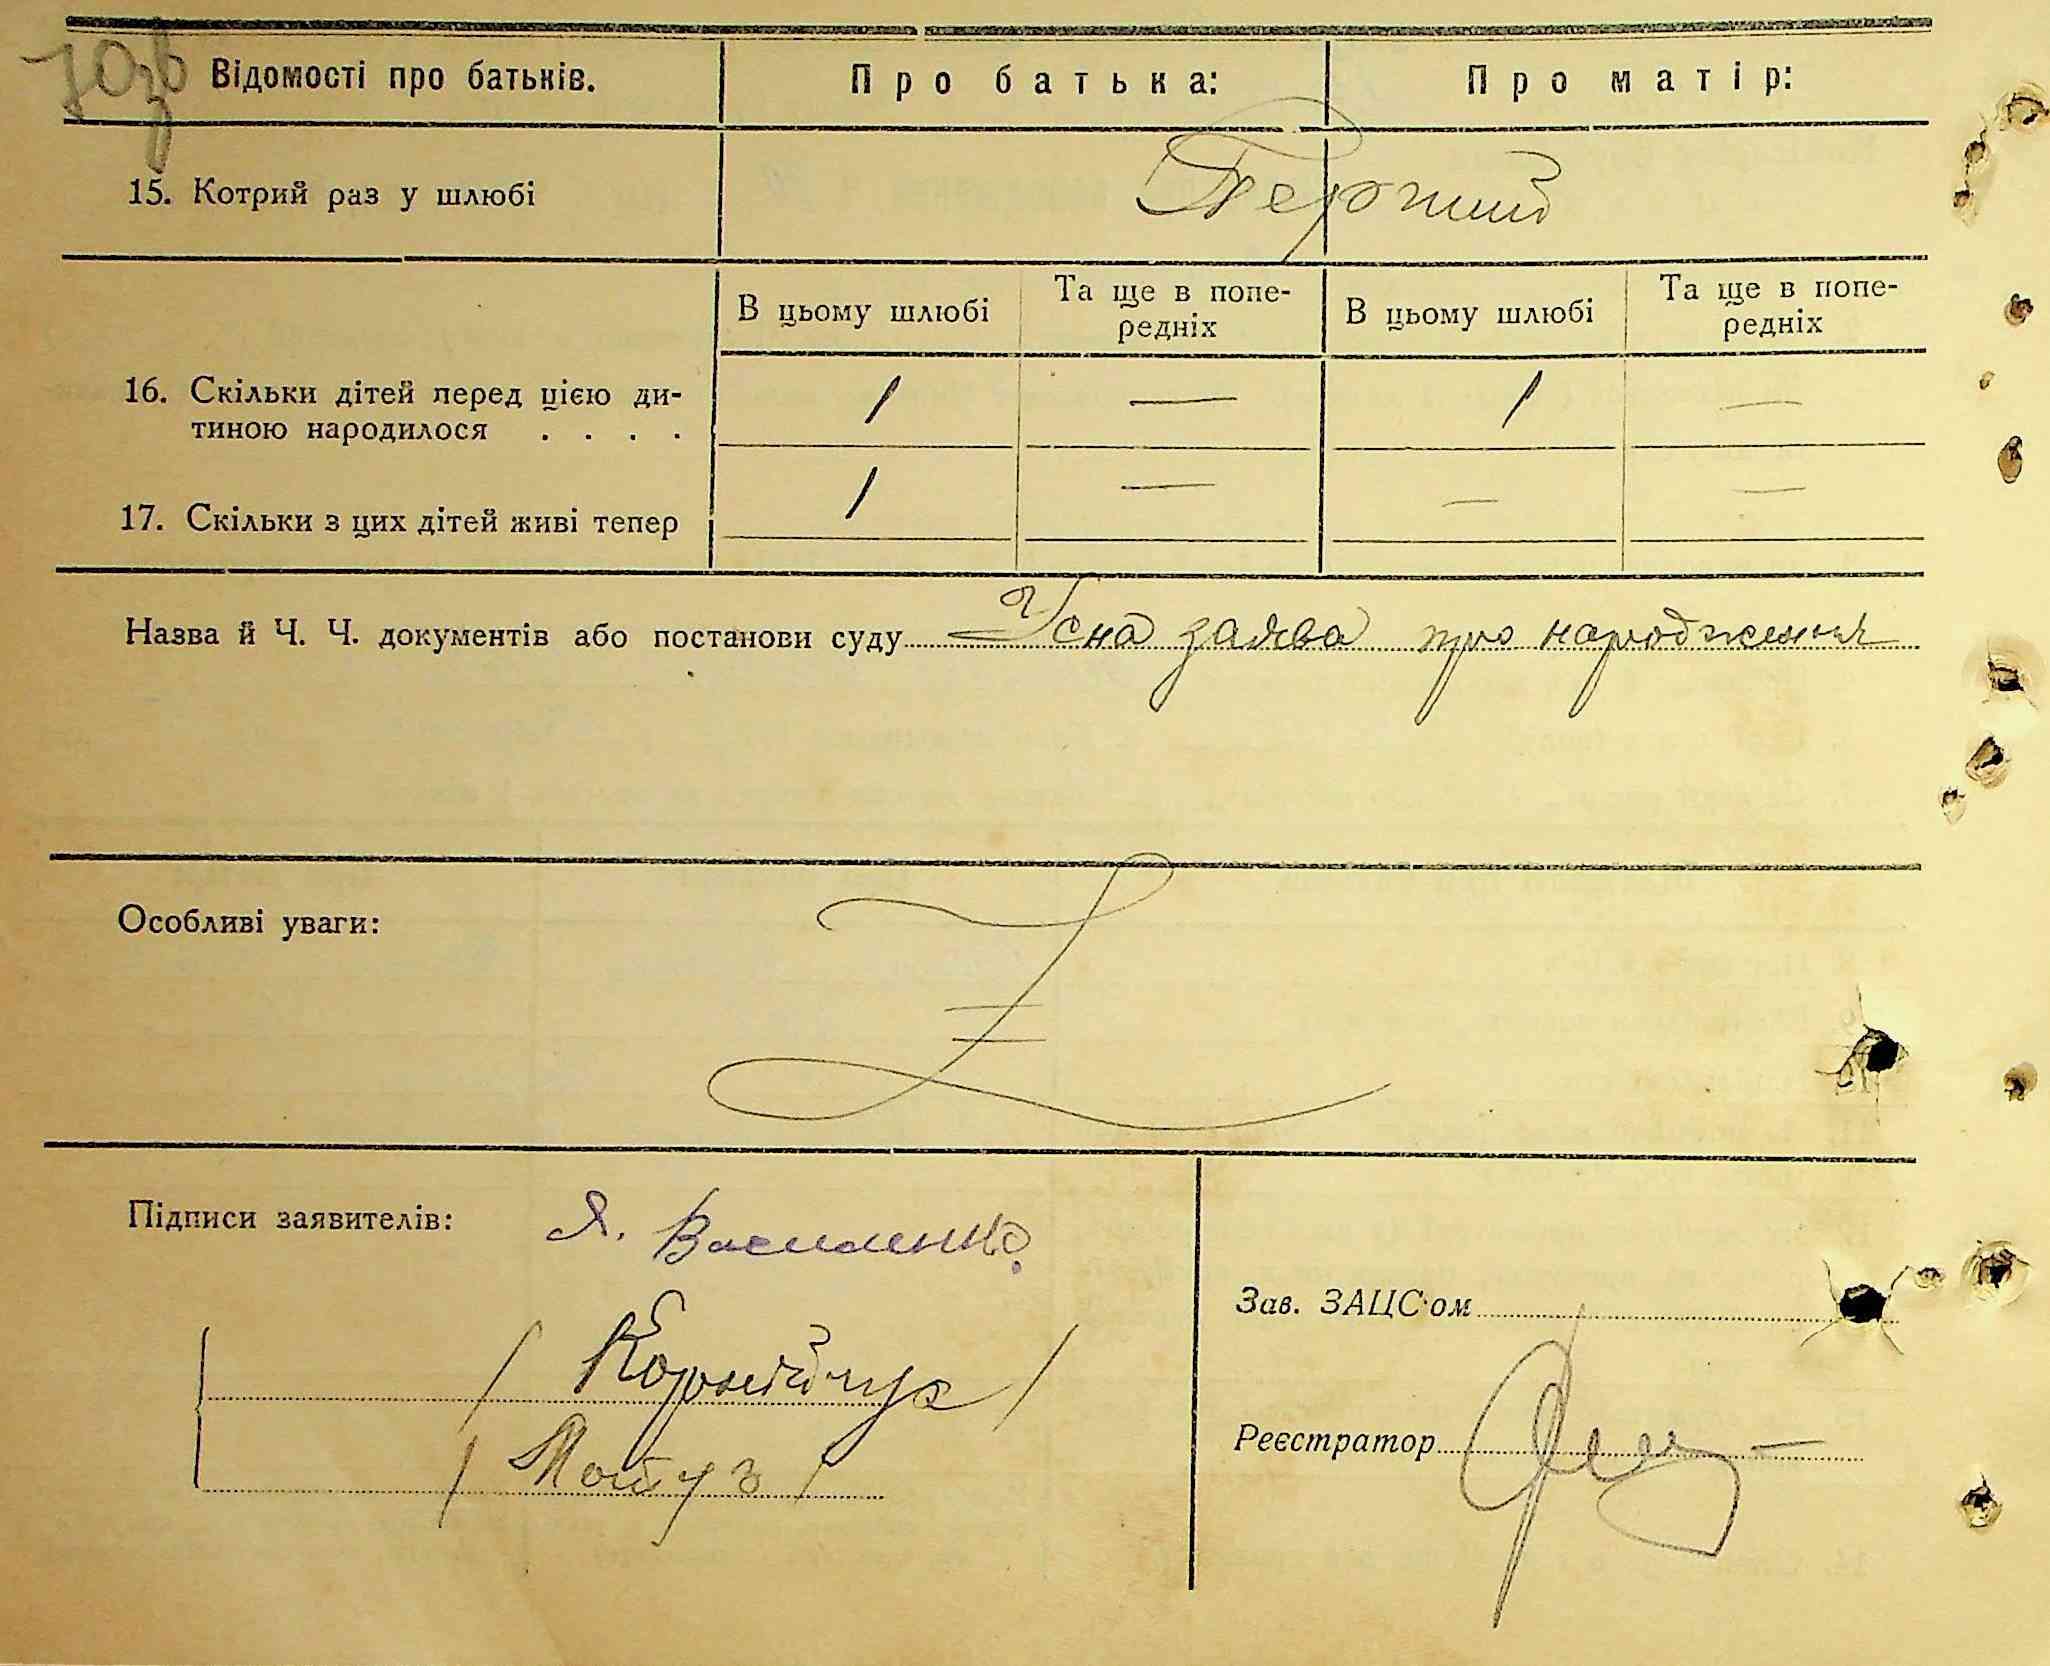 10зв
Відомості про батьків. Про батька: Про матір:
15. Котрий раз у шлюбі Перший
В цьому шлюбі Та ще в попе- В цьому шлюбі Та ще в попе-
редніх редніх
16. Скільки дітей перед цією ди- 1 — 1 —
тиною народилося . . . .
17. Скільки з цих дітей живі тепер 1 — — —
Назва й Ч. Ч. документів або постанови суду Усна заява про народження
Особливі уваги: Z
Підписи заявителів: Я. Василенко.
Зав. ЗАЦС'ом
/ Корнійчук /
Реєстратор
/ Мотуз /